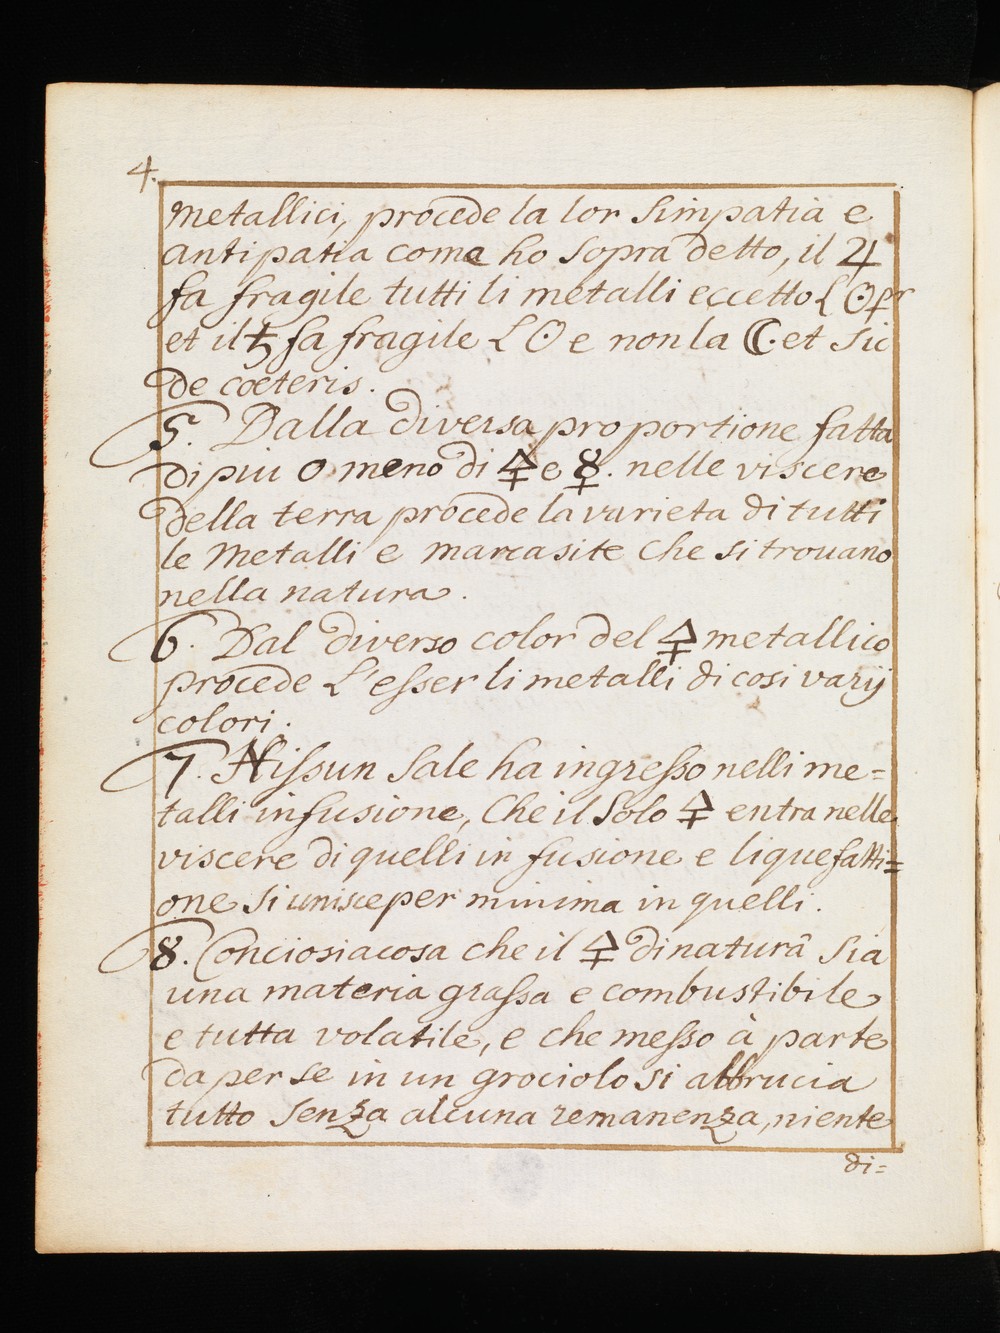 4.
metallici, procede la lor simpatia e
antipatia come ho sopra detto, il ♃
fa fragile tutti li metalli eccetto L ☉
et il ♄ fa fragile L ☉ e non la ☾. et sic
de cœteris.
5. Dalla diversa proportione fatta
di piu o meno di 🜍 e ☿. nelle viscere
della terra procede la varieta di tutti
le Metalli e marcasite che si trouano
nella natura.
6. Dal diverso color del 🜍 metallico
procede L'esser li metalli di cosi varij
colori.
7. Nissun sale ha ingresso nelli me=
talli in fusione, Che il solo 🜍 entra nelle
viscere di quelli in fusione e liquefatti=
one si unisce per minima in quelli.
8. Conciosiacosa che il 🜍 di naturâ sia
una materia grassa e combustibile
e tutta volatile, e che messo à parte
da per se in un grociolo si abbrucia
tutto senza alcuna remanenza, niente
di=